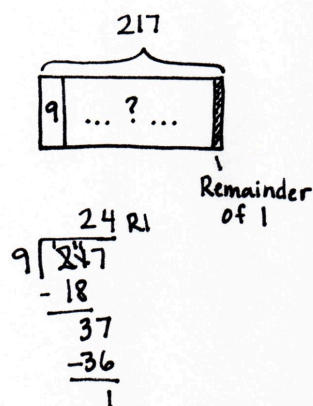 217
9 ... ? ...
Remainder
of 1
24 R1
9 217
- 18
37
-36
1